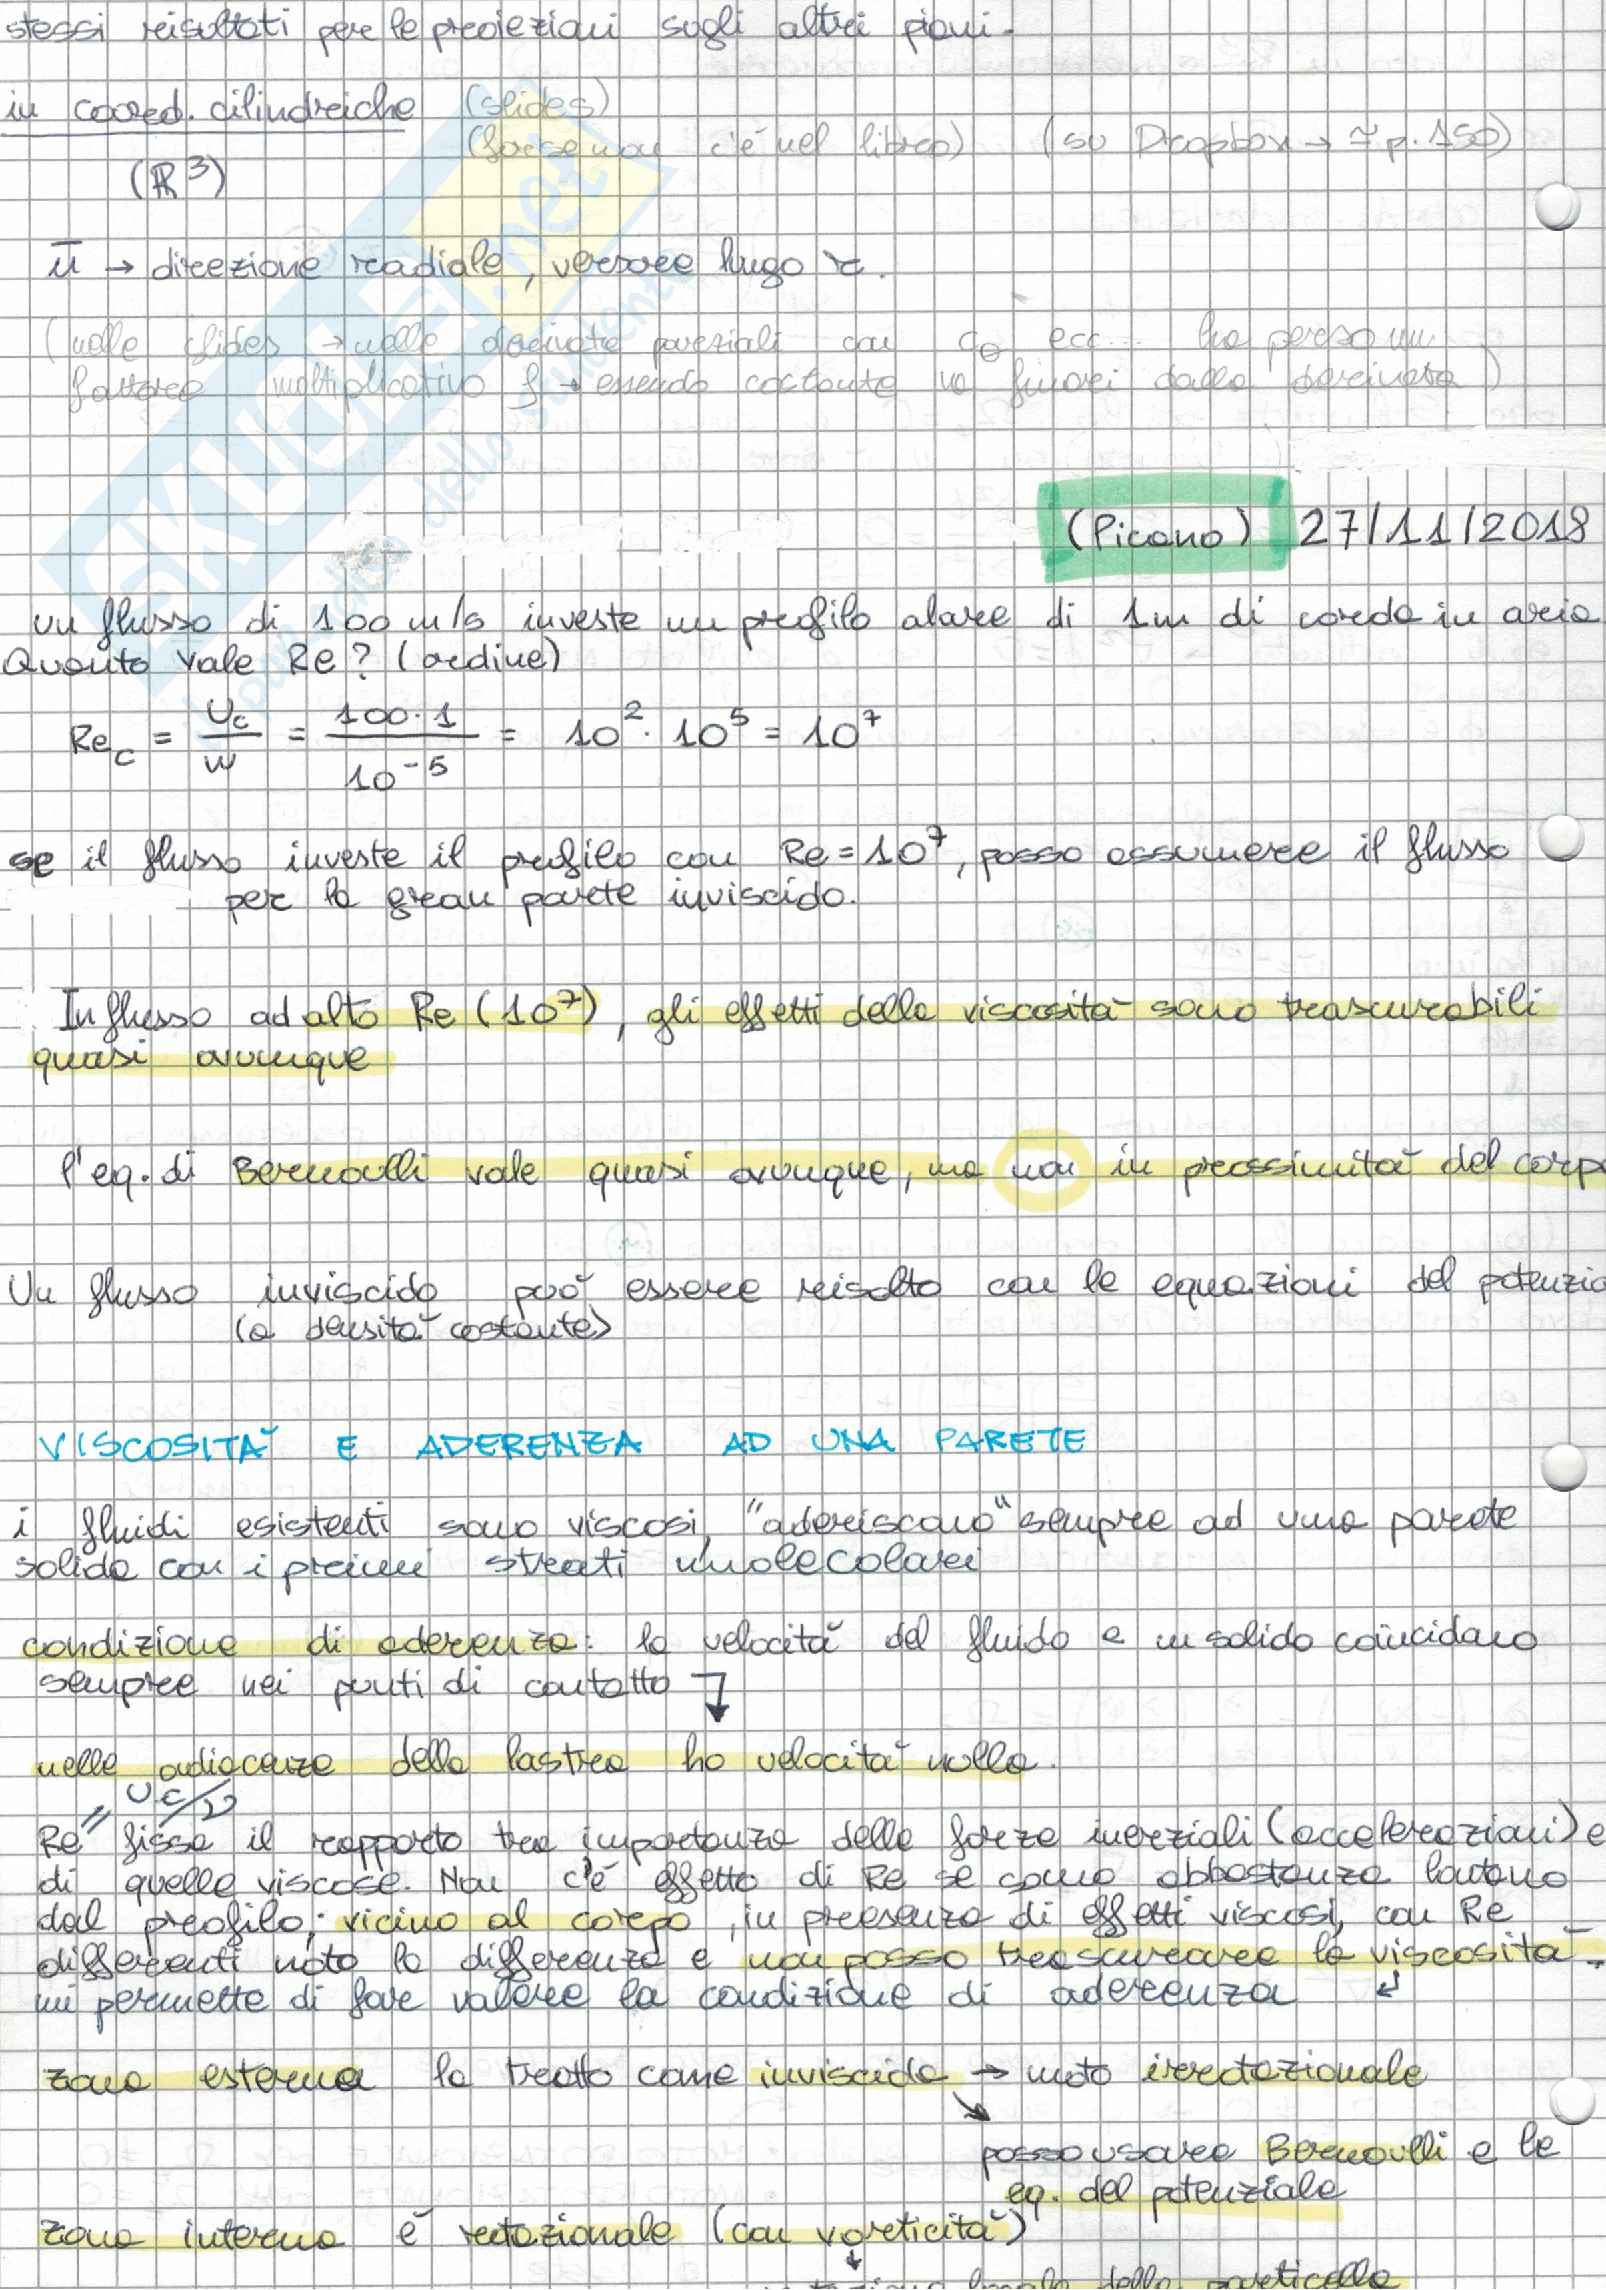 stessi risultati per le proiezioni sugli altri piani.
in coord. cilindriche (slides)
(forse non c'è nel libro) (su Dropbox → ~ p. 150)
(ℝ³)
ū → direzione radiale, versore lungo r.
(nelle slides → nelle derivate parziali con c_θ ecc... ha perso un
fattore moltiplicativo ρ → essendo costante va fuori dalla derivata)
(Picano) 27/11/2018
un flusso di 100 m/s investe un profilo alare di 1m di corda in aria
Quanto vale Re? (ordine)
Re_c = Uc/ν = 100·1/10⁻⁵ = 10²·10⁵ = 10⁷
se il flusso investe il profilo con Re = 10⁷, posso assumere il flusso
per la gran parte inviscido.
In flusso ad alto Re (10⁷), gli effetti della viscosità sono trascurabili
quasi ovunque
l'eq. di Bernoulli vale quasi ovunque, ma non in prossimità del corpo
Un flusso inviscido può essere risolto con le equazioni del potenzia
(a densità costante)
VISCOSITÀ E ADERENZA AD UNA PARETE
i fluidi esistenti sono viscosi, "aderiscono" sempre ad una parete
solida con i primi strati molecolari
condizione di aderenza: la velocità del fluido e un solido coincidano
sempre nei punti di contatto
nelle adiacenze della lastra ho velocità nulla.
Uc/ν
Re fissa il rapporto tra importanza delle forze inerziali (accelerazioni) e
di quelle viscose. Non c'è effetto di Re se sono abbastanza lontano
dal profilo; vicino al corpo, in presenza di effetti viscosi, con Re
differenti noto la differenza e non posso trascurare la viscosità.
mi permette di far valere la condizione di aderenza
zona esterna la tratto come inviscida → moto irrotazionale
posso usare Bernoulli e le
eq. del potenziale
zona interna è rotazionale (con vorticità)
locale della particella